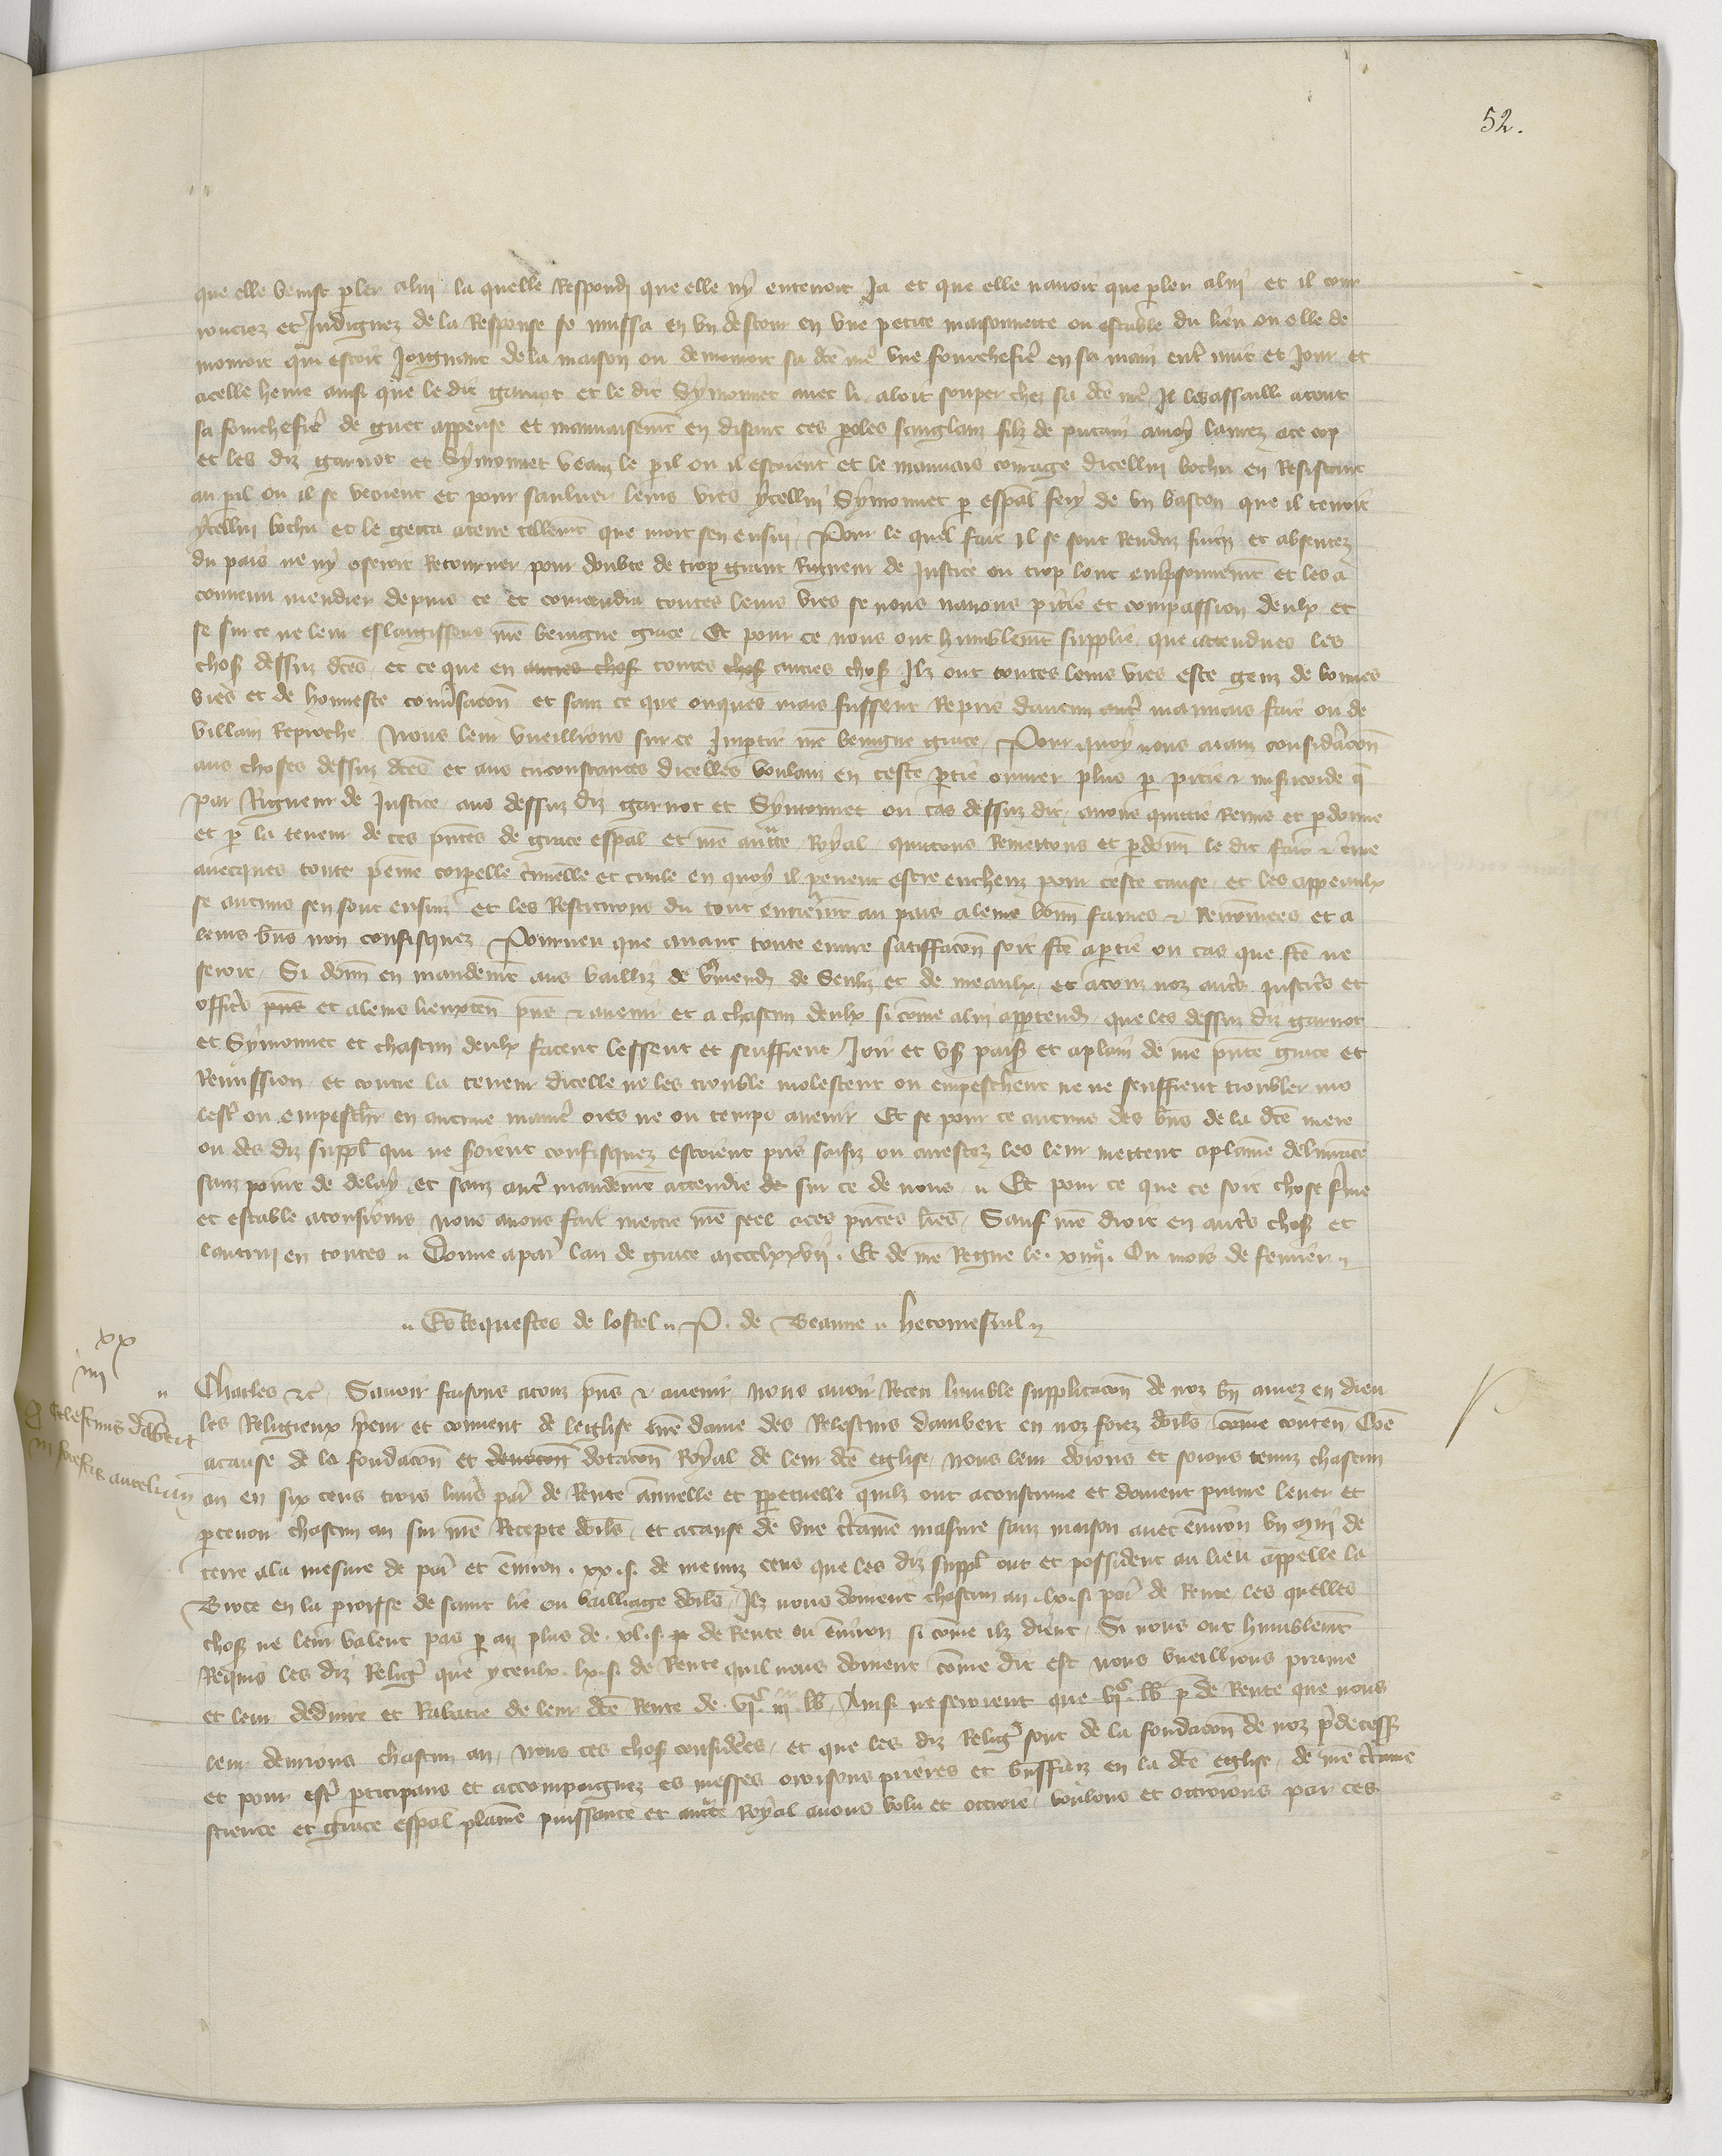 52.
que elle venist pler a lui la quelle Respondi que elle ny entenoit Ja et que elle navoit que pler a lui et il cour
rouciez et Indignez de la Response se mussa en un destour en une petite maisonnette ou estable du lieu ou elle de
mouroit qui estoit Joignant de la maison ou demouroit sa dce me une fourchefie en sa main entre nuit et Jour et
a celle heure ainsi que le dit garnot et le dit Symonnet avec li aloit souper chez sa dce me Il les assailli atout
sa fourchefie de guet appense et mauvaisemt en disant ces poles sanglanz filz de putain a moy laurez a ce cop
et les diz garnot et Symonnet veanz le pil ou il estoient et le mauvais courage dicellui bochu en Resistant
au pil ou il se veoient et pour sauluer leurs vies ycellui Symonnet p espal fery de un baston que il tenoit
ycellui bochu et le getta a terre tellemt que mort sen ensui Pour le quel fait Il se sont Renduz fuitis et absentez
du pais ne ny oseroit Retourner pour doubte de trop grant Rigueur de Justice ou trop lonc emprisonnemt et les a
convenu mendier depuis ce et convendra toutes leurs vies se nous navons pitie et compassion deulx et
se sur ce ne leur eslargissons nre benigne grace Et pour ce nous ont humblemt supplie que attendues les
choses dessuz dces et ce que en autres choses toutes choses autres choses Ilz ont toutes leurs vies este genz de bonnes
vies et de honneste conversacon et sanz ce que onques mais fussent Repris daucun autre mauvais fait ou de
villain Reproche Nous leur vueillions sur ce Impartir nre benigne grace Pour quoy nous aianz consideracon
aus choses dessuz dces et aus circonstances dicelles voulanz en ceste ptie ouurer plus p pitie et misericorde q
par Rigueur de Justice aus dessuz diz garnot et Symonnet ou cas dessuz dit avons quittie Remis et pdonne
et p la teneur de ces pntes de grace espal et nre autte Royal quittons Remettons et pdonns le dit fait et crime
avecques toute peine corpelle criminelle et civile en quoy il peuent estre encheuz pour ceste cause et les appeaulx
se aucuns sen sont ensuiz et les Restituons du tout entieremt au pais a leurs bonnes fames et Renommees et a
leurs biens non confisquez Pourveu que avant toute euure satisffacon soit fce a ptie ou cas que fce ne
seroit Si donns en mandemt aus bailliz de vermend de Senliz et de meaulx et a touz noz autrs justicrs et
officrs pns et a leurs lieuxten pns et avenir et a chascun deulx si come a lui apptend que les dessuz diz garnot
et Symonnet et chascun deulx facent lessent et seuffrent Joir et user paisiblement et a plain de nre pnte grace et
Remission et contre la teneur dicelle ne les trouble molestent ou empeschent ne ne seuffrent troubler mo
lester ou empeschier en aucune maniere ores ne ou temps avenir Et se pour ce aucuns des bns de la dce mere
ou des diz suppl qui ne soient confisquez estoient pris saisiz ou arrestez les leur mettent a plaine delivrance
sanz point de delay et sanz autre mandemt attendre de sur ce de nous Et pour ce que ce soit chose ferme
et estable a tousjours nous avons fait mettre nre seel a ces pntes lres Sauf nre droit en autrs choses et
lautrui en toutes Donne a par lan de grace mccclxxvij Et de nre Regne le xiiije Ou mois de fevrier
Es Requestes de lostel P. de Beaune hecomesnil
xx
iiij
Celestinis dambert
in forestis aurelian
Charles etc Savoir faisons a touz pns et avenir nous avoir Receu humble supplicacon de noz bn amez en dieu
les Religieux prieur et couvent de leglise nre dame des Celestins dambert en noz forez dorls come conten Coe
a cause de la fondacon et devocon dotacon Royal de leur dce eglise nous leur doions et soions tenuz chascun
an en six cens trois livres par de Rente annuelle et perpetuelle quilz ont acoustume et doivent prenre lever et
pcevoir chascun an sur nre Recepte dorls et a cause de une certaine masure sanz maison avec environ un quartier de
terre a la mesure de par et environ xx s de menuz cens que les diz suppl ont et possident au lieu appelle la
Broce en la proisse de saint lie ou bailliage dorls Ilz nous doivent chascun an lx s par de Rente les quelles
choses ne leur valent pas p an plus de xl s p de Rente ou environ si come ilz dient Si nous ont humblemt
Requis les diz Religx que yceulx lx s de Rente quil nous doivent come dit est nous vueillions prenre
et leur deduire et Rabatre de leur dce Rente de vjc iij lb Ainsi ne seroient que vjc lb p de Rente que nous
leur devrions chascun an Nous ces choses considerees et que les diz Religx sont de la fondacon de noz predecess
et pour estre pticipans et accompaignez es messes oroisons prieres et bnffaiz en la dce eglise de nre certaine
science et grace espal plaine puissance et autte Royal avons volu et ottroie voulons et ottroions par ces